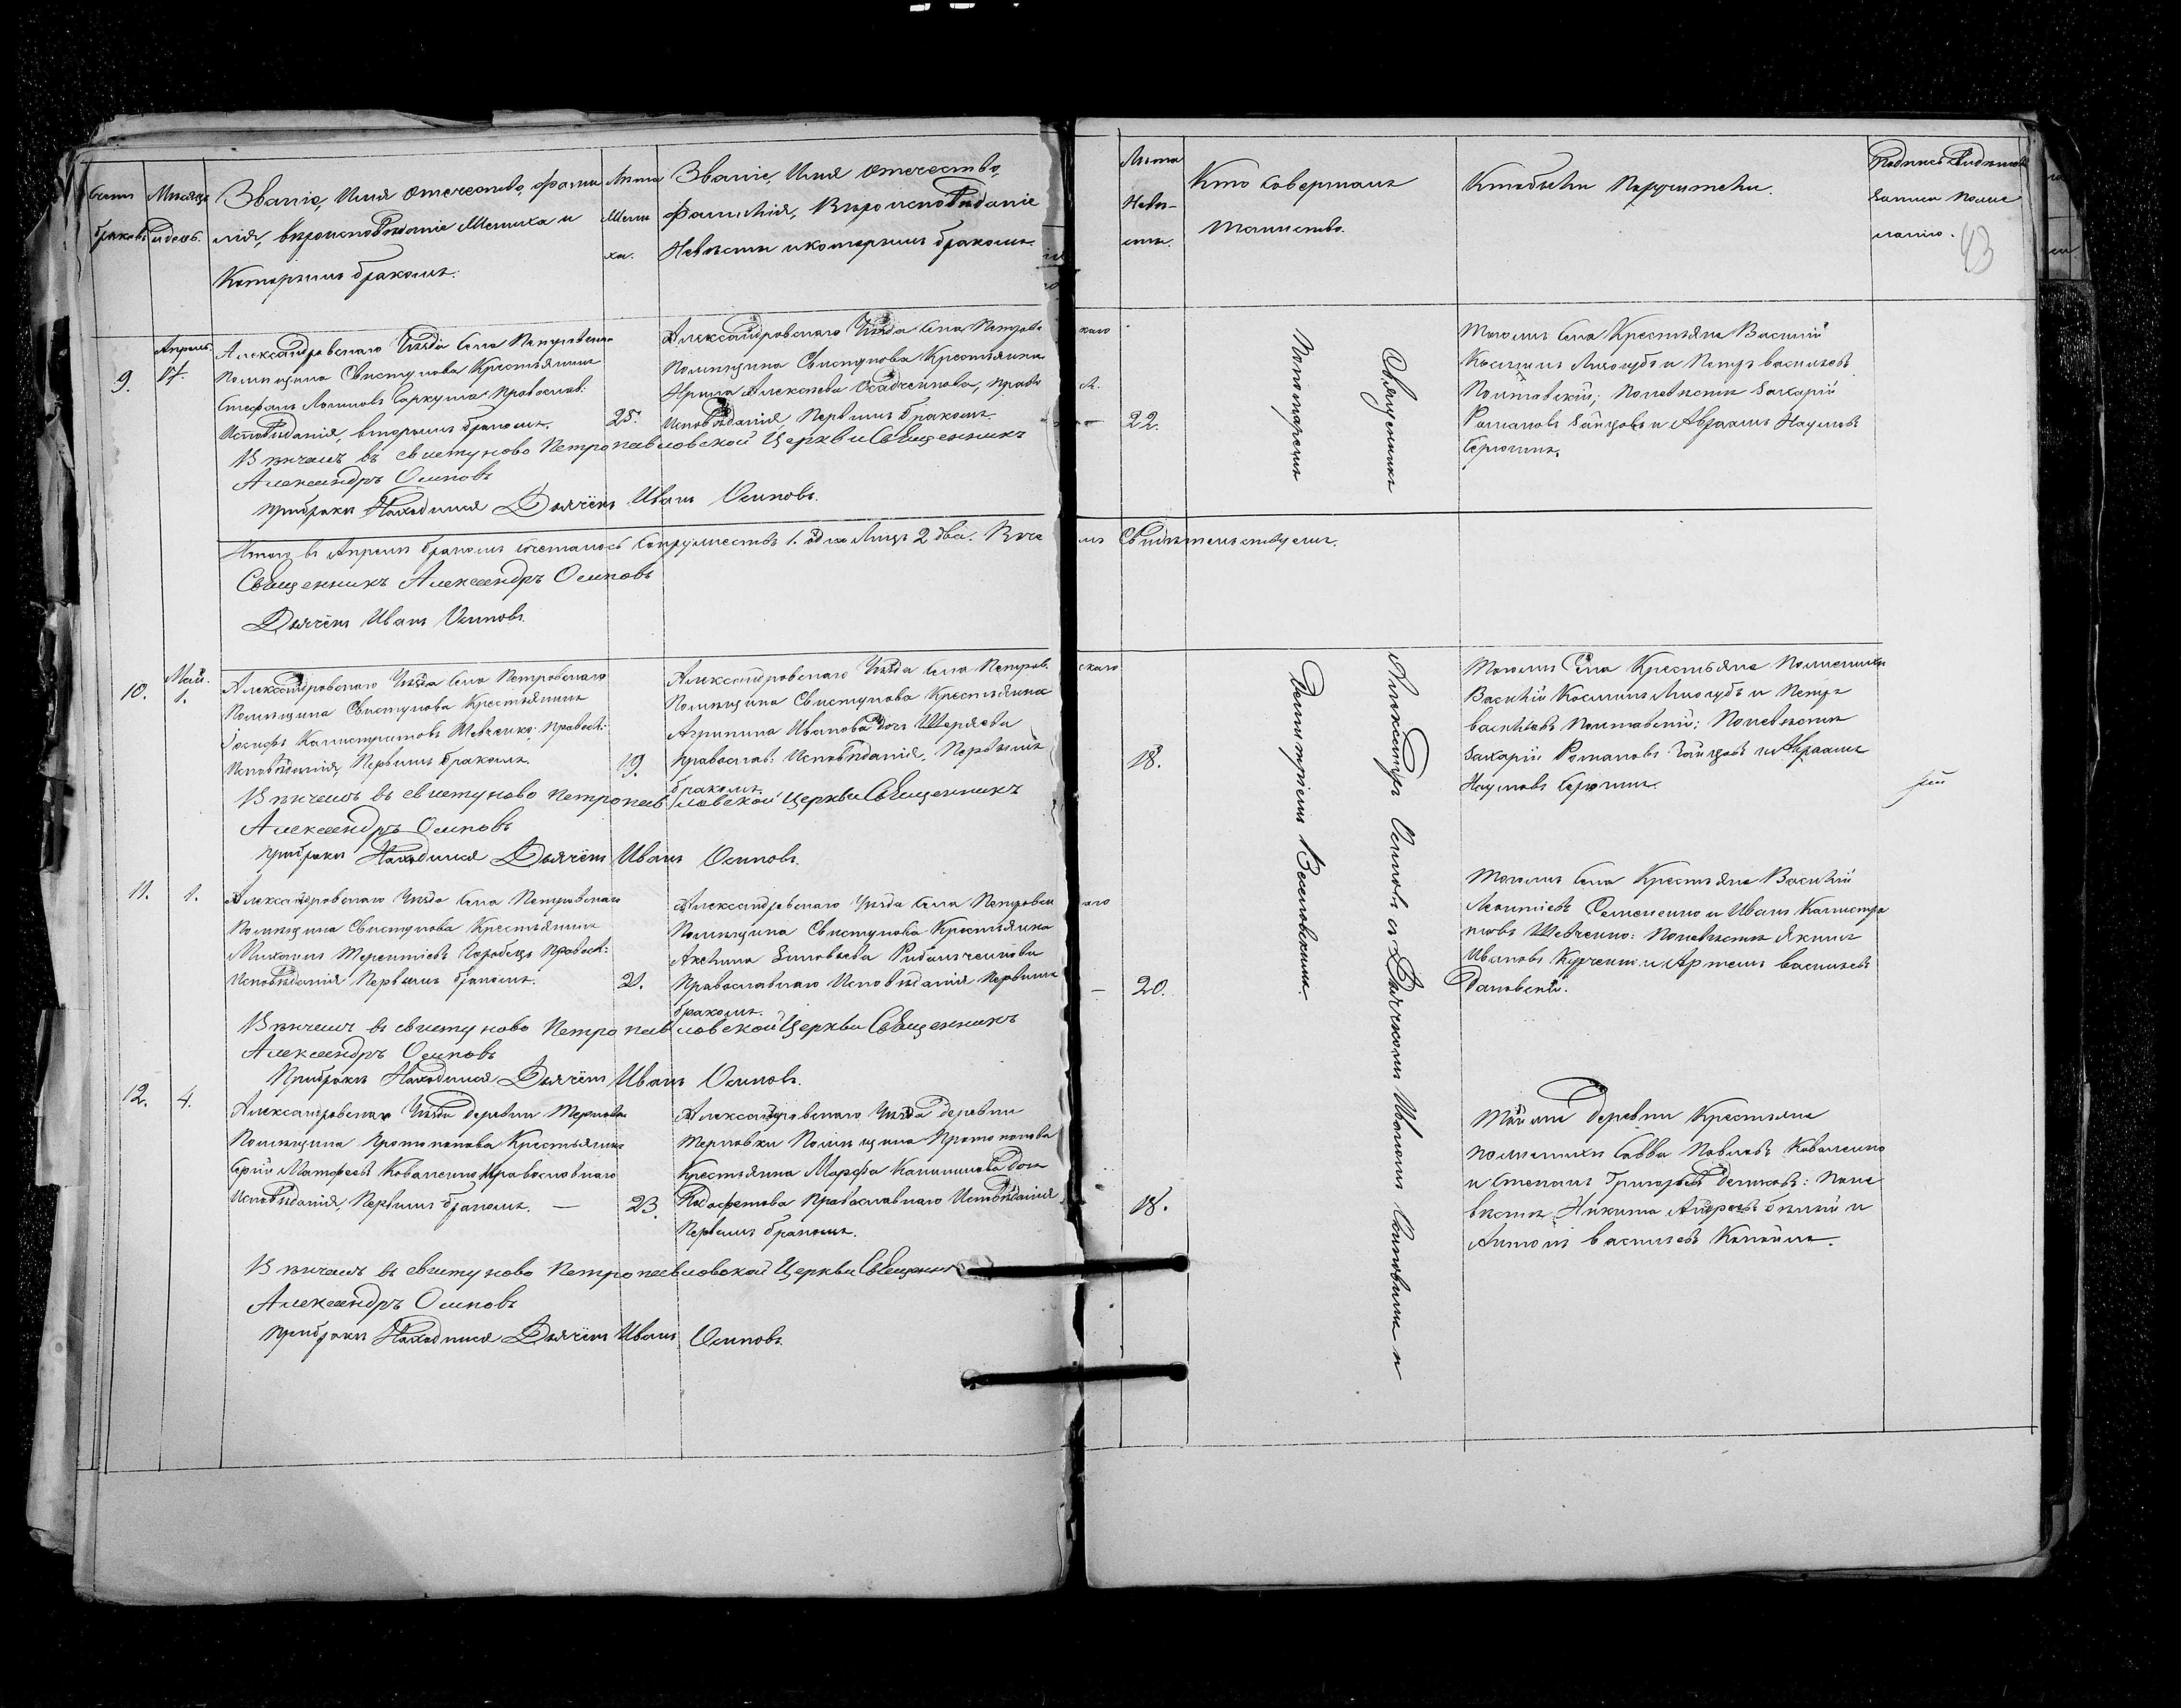 Счетъ браковъ
Мѣсяцъ и день.
Званіе, Имя отечество, фами
лія, вѣроисповѣданіе Жениха и
Которымъ бракомъ.
Лѣта
Жени
ха.
Званіе, Имя отечество,
фамилія, Вѣроисповѣданіе
Невѣсты и которымъ бракомъ.
Лѣта
Невѣ-
сты.
Кто совершалъ
таинство.
Кто были Поручители.
Подпись свидѣтелей
записи по же
ланію.
43
9.
Апрѣль
17.
Александровскаго Уѣзда Села Петровскаго
Помѣщика Свистунова Крестьянинъ
Стефанъ Логиновъ Саркума Православ.
Исповѣданія, вторымъ бракомъ.
25.
Александровскаго Уѣзда Села Петровс
каго
Помѣщика Свистунова Крестьянка
Ирина Алексѣева Осадченкова, право
Исповѣданія, Первымъ бракомъ.
22.
Священникъ
Пономаремъ
Тогожъ Села Крестьяне Василій
Косминъ Лизогубъ и Петръ Васильевъ
Полтавскій; По невѣстѣ Захарій
Романовъ Заицовъ и Авраамъ Наумовъ
Серюгинъ.
Вѣнчалъ въ свистуново Петропавловской Церкви Священникъ
Александръ Осиповъ
При бракѣ Находился Дьячёкъ Иванъ Осиповъ.
Итого въ Апрелѣ бракомъ сочеталось Супружествъ 1. одно Лицъ 2 два. В че
мъ Свидѣтельствуемъ.
Священникъ Александръ Осиповъ
Дьячёкъ Иванъ Осиповъ.
10.
Май.
1.
Александровскаго Уѣзда Села Петровскаго
Помѣщика Свистунова Крестьянинъ
Іосифъ Калистратовъ Шевченко; Правосл:
Исповѣданія, Первымъ бракомъ.
19.
Александровскаго Уѣзда Села Петров
скаго
Помѣщика Свистунова Крестьянка
Агрипина Иванова Дочь
Православ: Исповѣданія, Первымъ
бракомъ.
18.
Александръ Осиповъ съ Дьячкомъ Иваномъ Осиповымъ и
Димитріемъ
Тогожъ Села Крестьяне По женихѣ
Василій Косминъ Лизогубъ и Петръ
Васильевъ Полтавскій; По невѣстѣ
Захарій Романовъ Заицовъ и Авраамъ
Наумовъ Серюгинъ.
Вѣнчалъ въ свистуново петропавловской церкви Священникъ
Александръ Осиповъ
При бракѣ Находился Дьячёкъ Иванъ Осиповъ.
11.
1.
Александровскаго Уѣзда Села Петровскаго
Помѣщика Свистунова Крестьянинъ
Михаилъ Терентіевъ Горобецъ Правосл:
Исповѣданія Первымъ бракомъ.
21.
Александровскаго Уѣзда Села Петровск
аго
Помѣщика Свистунова Крестьянка
Аксинья Зиновьева
Православнаго Исповѣданія Первымъ
бракомъ.
20.
Тогожъ Села Крестьяне Василій
Леонтіевъ Семененко и Иванъ Калистра
товъ Шевченко: По невѣстѣ Якимъ
Ивановъ и Артемъ Васильевъ
Вѣнчалъ въ свистуново Петропавловской Церкви Священникъ
Александръ Осиповъ
При бракѣ Находился Дьячёкъ Иванъ Осиповъ.
12.
4.
Александровскаго Уѣзда деревни Терновки
Помѣщика Протопопова Крестьянинъ
Матфеевъ Коваленко Православнаго
Исповѣданія, Первымъ бракомъ.
23.
Александровскаго Уѣзда деревни
Терновки Помѣщика Протопопова
Крестьянка Марфа Калинникова Дочь
Православнаго Исповѣданія
Первымъ бракомъ.
18.
Той же деревни Крестьяне
по женихѣ Савва Павловъ Коваленко
и Степанъ Григорьевъ Дениковъ: По не
вѣстѣ Никита Андреевъ Бѣлый и
Антонъ Васильевъ
Вѣнчалъ въ свистуново Петропавловской Церкви Священникъ
Александръ Осиповъ
при бракѣ Находился Дьячёкъ Иванъ Осиповъ.